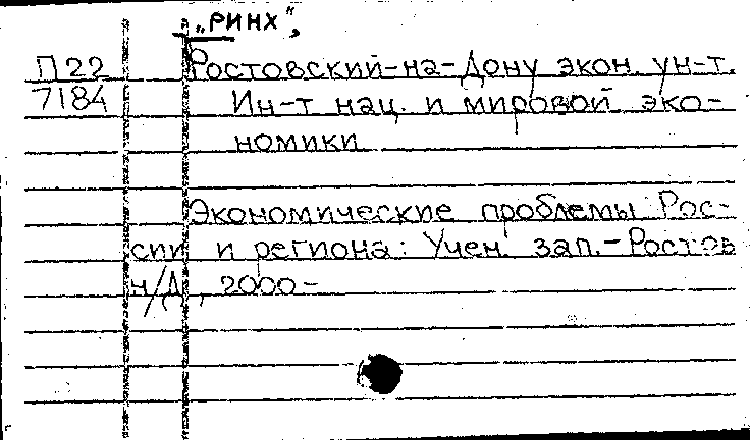 „РИНХ",
П22 Ростовский-на-Дону экон. ун-т.
7184 Ин-т нац. и мировой эко-
номики
Экономические проблемы Рос-
сии и региона: Учен. зап.-Ростов
н/Д, 2000-